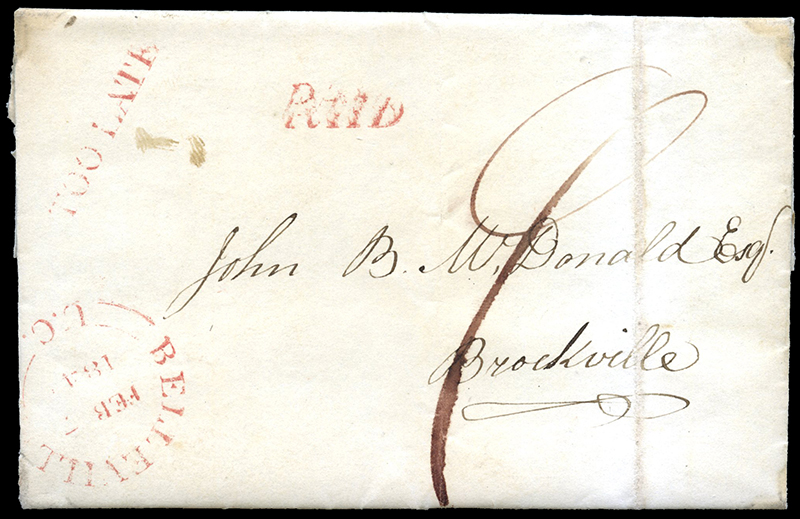 TOO LATE
PAID
9
John B. Mc.Donald Esq.
Brockville
BELLEVILLE
U.C.
FEB